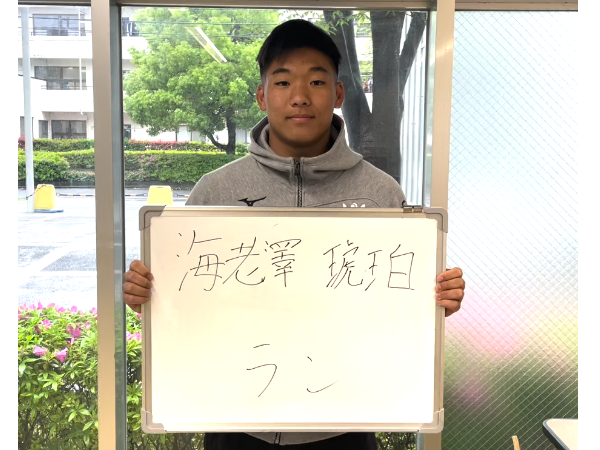 海老澤 琥珀
ラン